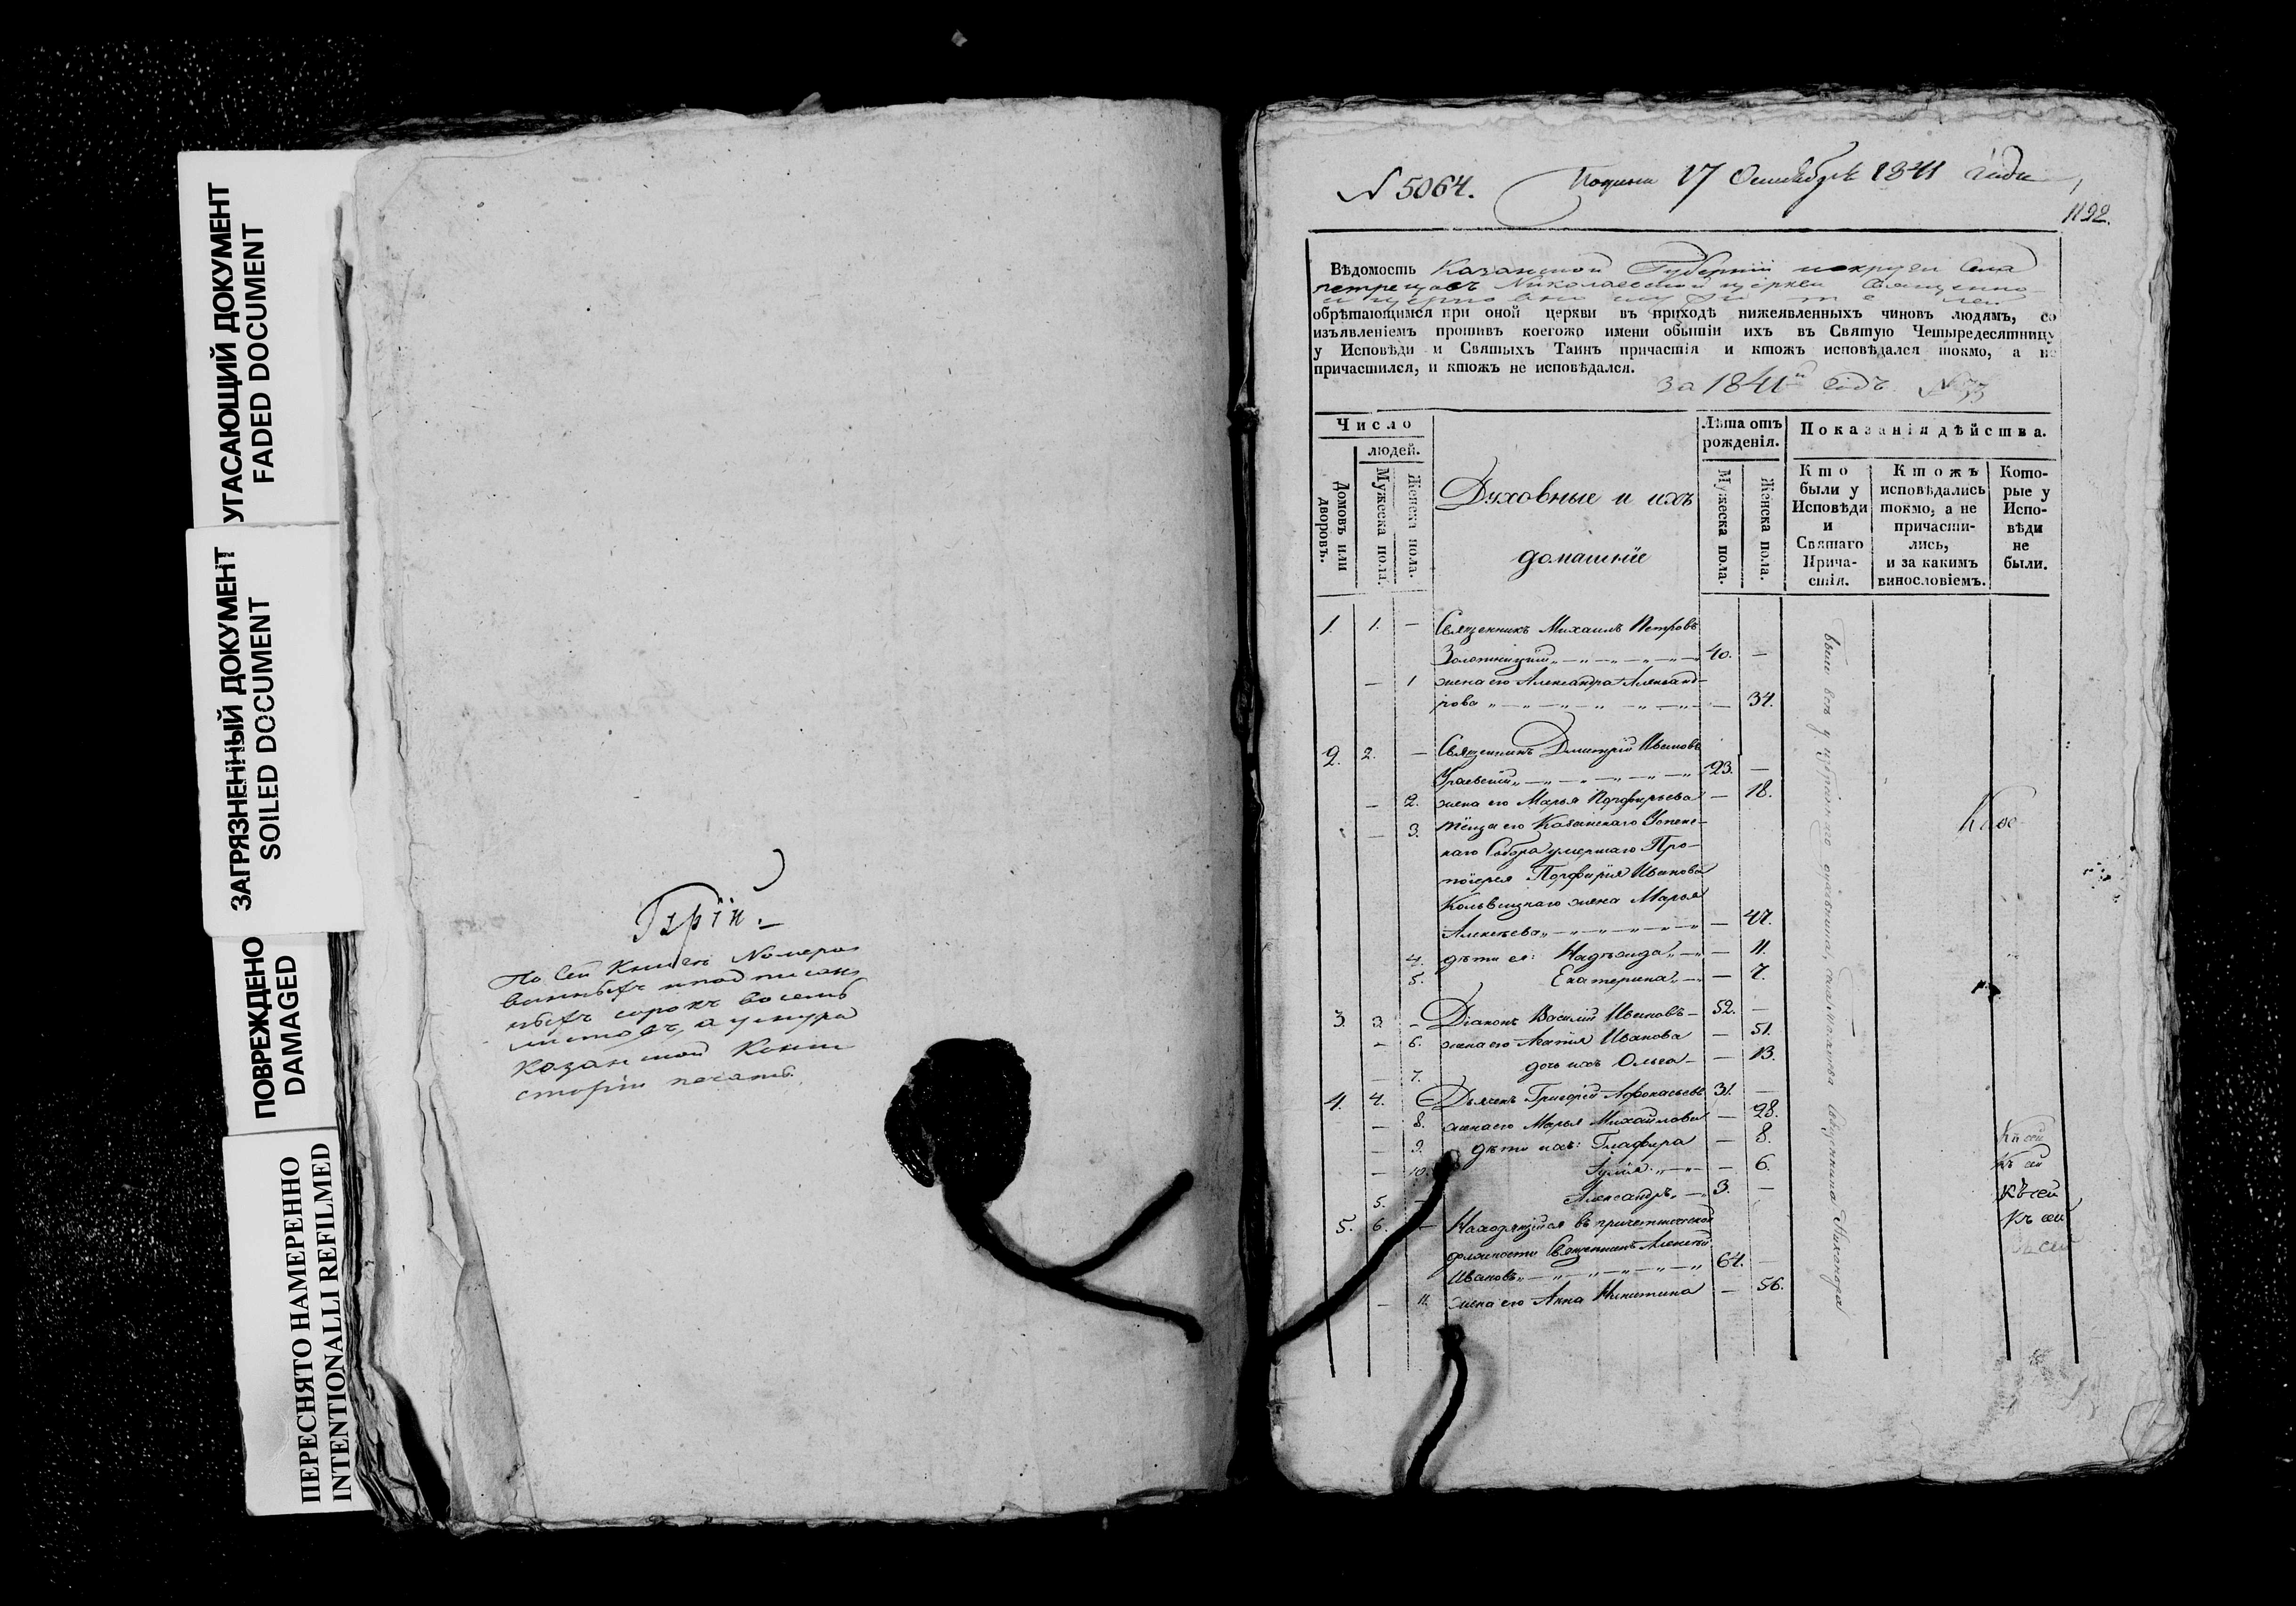 УГАСАЮЩИЙ ДОКУМЕНТ
FADED DOCUMENT
ЗАГРЯЗНЕННЫЙ ДОКУМЕНТ
SOILED DOCUMENT
ПОВРЕЖДЕНО
DAMAGED
ПЕРЕСНЯТО НАМЕРЕННО
INTENTIONALLI REFILMED
По сей Книгѣ Номеро
ванныхъ и подписан
ныхъ сорокъ восемь
листовъ, а у шнура
Казанской Конси
сторіи печать.
N 5064. 17 Октября 1841 года
1192.
Вѣдомость Казанской Губерніи округи Села
Николаевской церкви Священно
и церковно служителей
обрѣтающимся при оной церкви въ приходѣ нижеявленныхъ чиновъ людямъ, со
изъявленіемъ противъ коегожо имени обытіи ихъ въ Святую Четыредесятницу
у Исповѣди и Святыхъ Таинъ причастія и ктожъ исповѣдался токмо, а не
причастился, и ктожъ не исповѣдался.
за 1841й годъ. N 33
Число
людей.
Домовъ или дворовъ.
Мужеска пола.
Женска пола.
Духовные и ихъ
домашніе
Лѣта отъ рожденія.
Мужеска пола.
Женска пола.
Показанія дѣйства.
Кто были у Исповѣди и Святаго Причастія.
Ктожъ исповѣдались токмо, а не причастились, и за какимъ винословіемъ.
Которые у Исповѣди не были.
1. 1. — Священникъ Михаилъ Петровъ
Золотницкій 40. —
— 1 жена его Александра Александ-
рова — 34.
2. 2. — Священникъ Дмитрій Ивановъ
Ураевскій 23. —
— 2. жена его Марья Порфирьева — 18.
— 3. тёща его Казанскаго Успен-
каго Собора умершаго Про-
тоіерея Порфирія Иванова
жена Марья
Алексѣева — 47.
4. дѣти ея: Надѣжда — 11.
5. Екатерина — 7.
3. 3. — Діаконъ Василій Ивановъ 52. —
— 6. жена его Иванова — 51.
— 7. дочь ихъ Ольга — 13.
4. 4. — Дьячекъ Григорій Афонасьевъ 31. —
— 8. жена его Марья Михайлова — 28.
— 9. дѣти ихъ: Глафира — 8.
— 10. Іулія — 6.
5. — Александръ 3. —
5. 6. — Находящійся въ причетнической
должности Священникъ Алексѣй
Ивановъ 64. —
— 11. жена его Анна Никитина — 56.
Къ сей
Къ сей
Къ сей
Къ сей